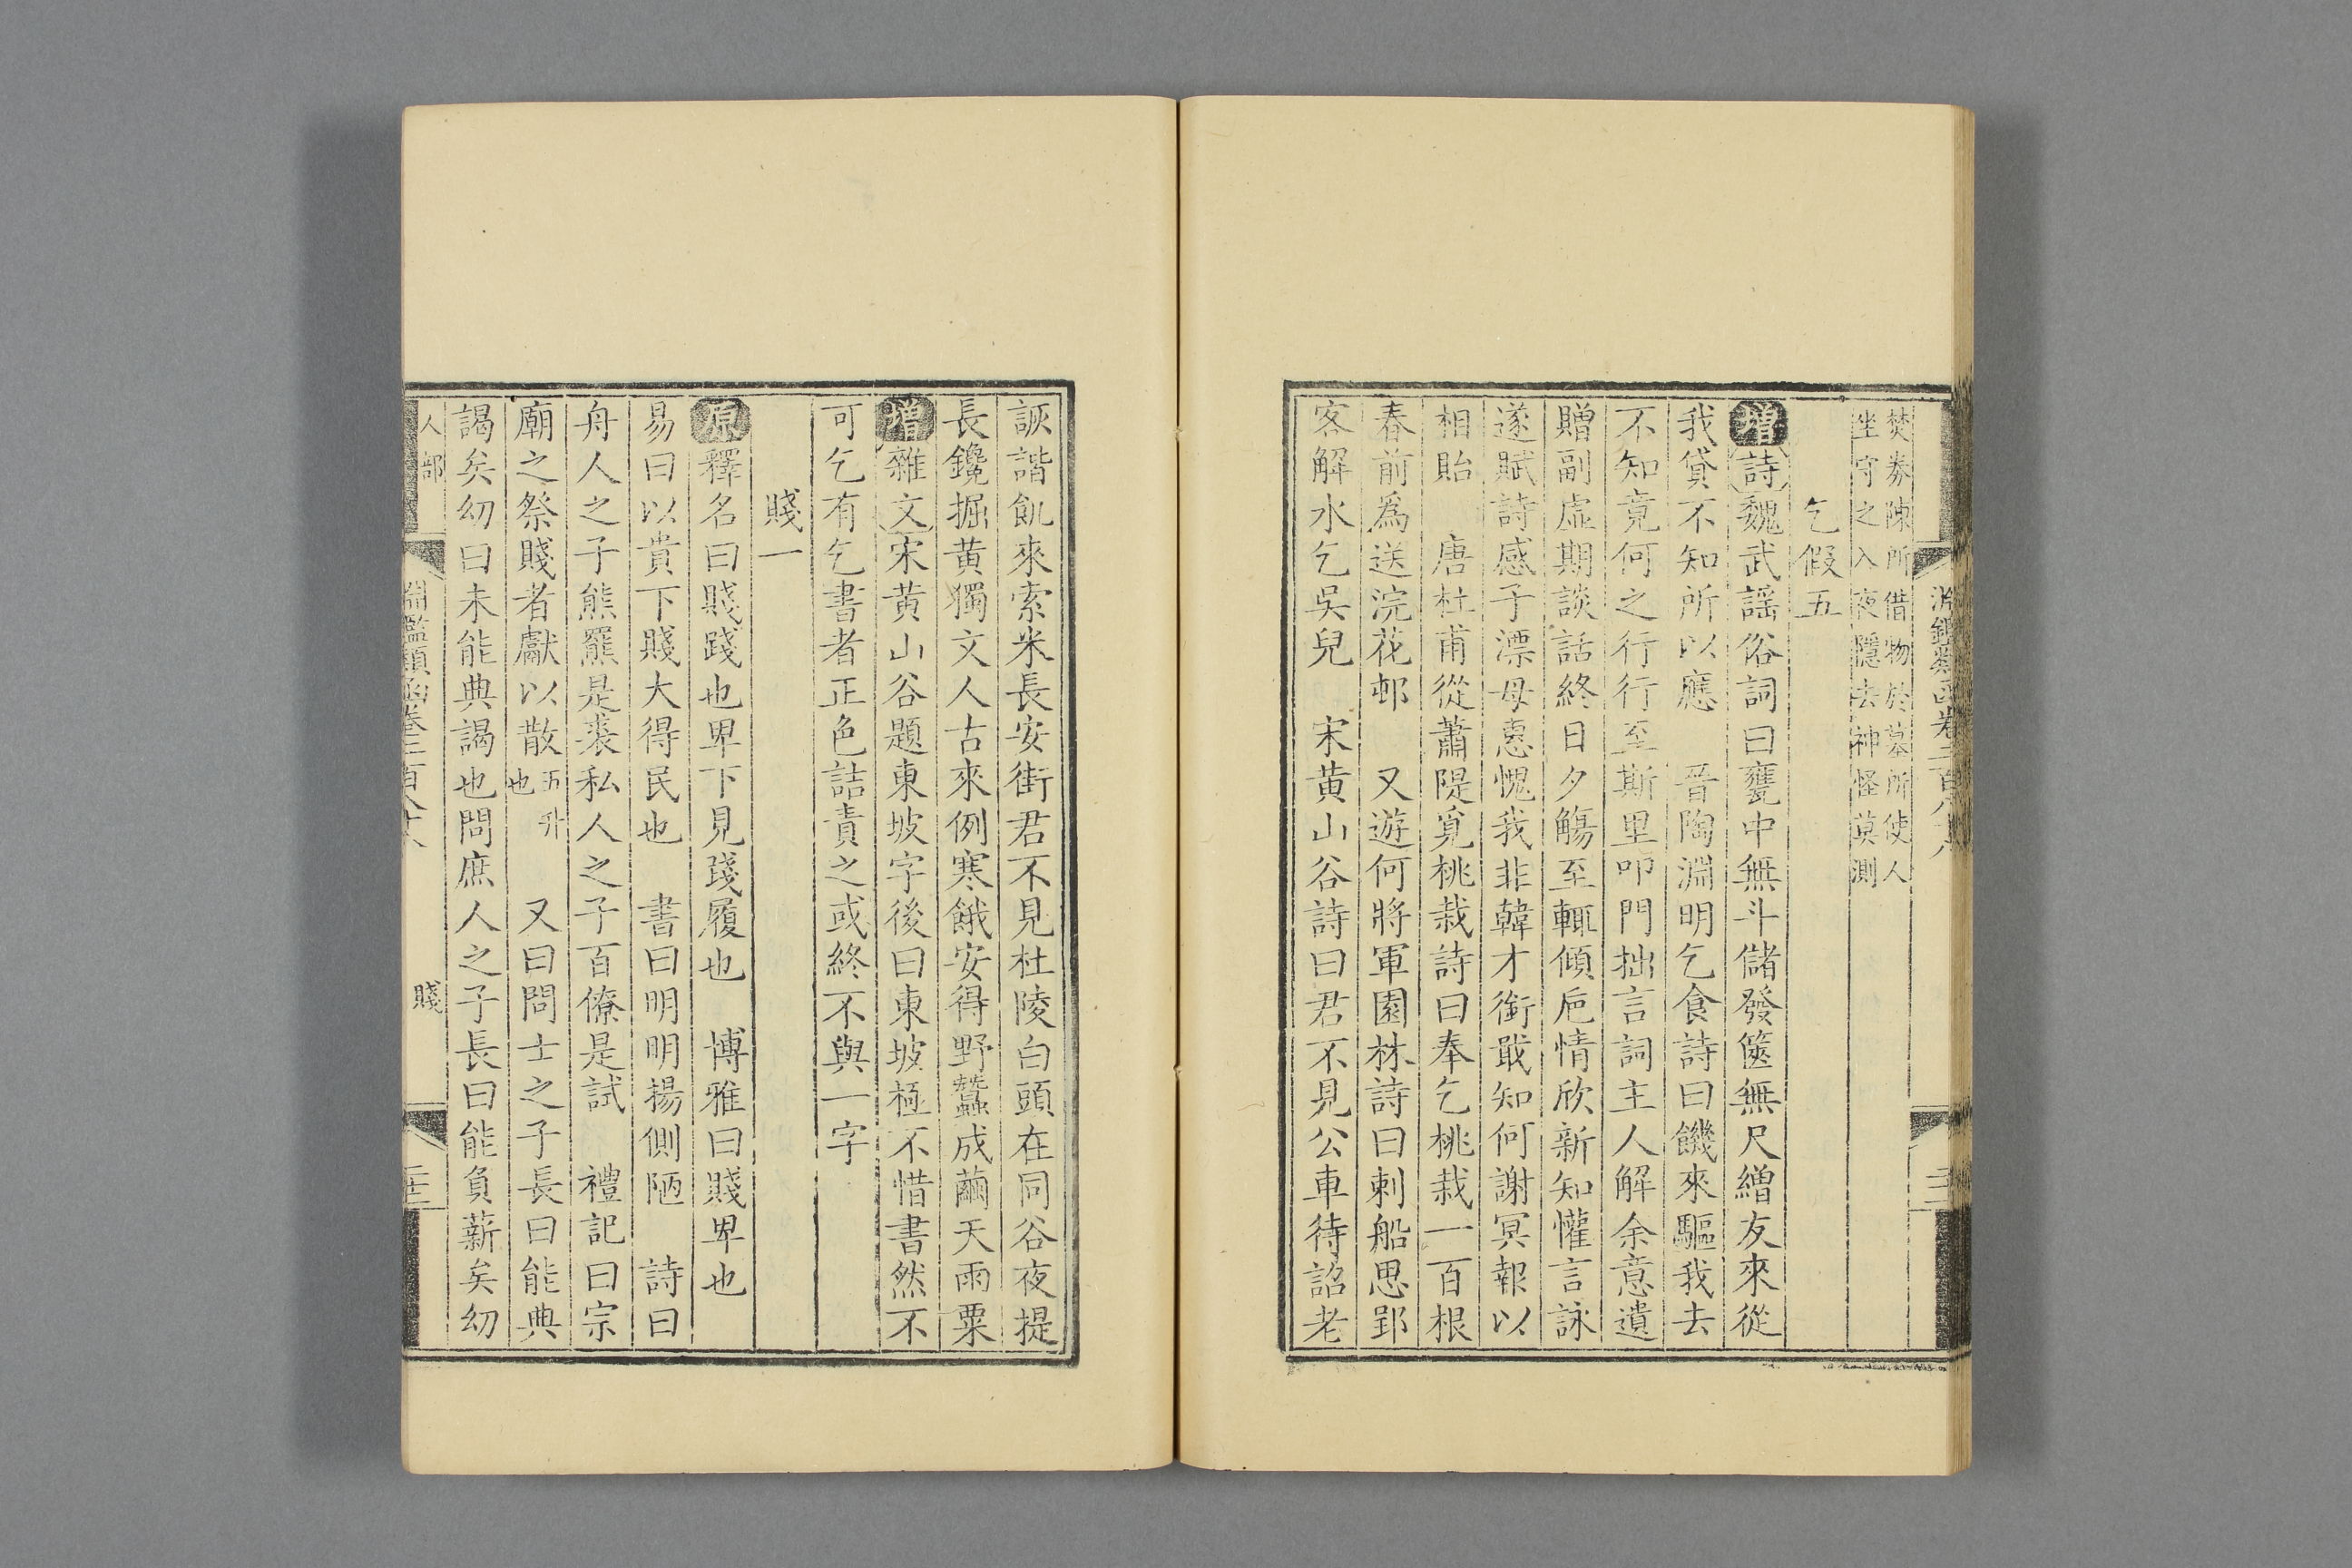 焚券陳所借物於墓所使人
坐守之入夜隱去神怪莫測
乞假五
增詩魏武謡俗詞曰甕中無斗儲發篋無尺繒友來從
我貸不知所以應 晉陶淵明乞食詩曰饑來驅我去
不知竟何之行行至斯里叩門拙言詞主人解余意遺
贈副虛期談話終日夕觴至輒傾巵情欣新知懽言詠
遂賦詩感子漂母惠愧我非韓才銜戢知何謝冥報以
相貽 唐杜甫從蕭隄覓桃栽詩曰奉乞桃栽一百根
春前爲送浣花邨 又遊何將軍園林詩曰刺船思郢
客解水乞吳兒 宋黄山谷詩曰君不見公車待詔老
詼諧飢來索米長安街君不見杜陵白頭在同谷夜提
長鑱掘黄獨文人古來例寒餓安得野蠶成繭天雨粟
增雜文宋黄山谷題東坡字後曰東坡極不惜書然不
可乞有乞書者正色詰責之或終不與一字
賤一
原釋名曰賤踐也卑下見踐履也 博雅曰賤卑也
易曰以貴下賤大得民也 書曰明明揚側陋 詩曰
舟人之子熊羆是裘私人之子百僚是試 禮記曰宗
廟之祭賤者獻以散五升也 又曰問士之子長曰能典
謁矣幼曰未能典謁也問庶人之子長曰能負薪矣幼
人部
淵鑑類函卷三百八十八
賤